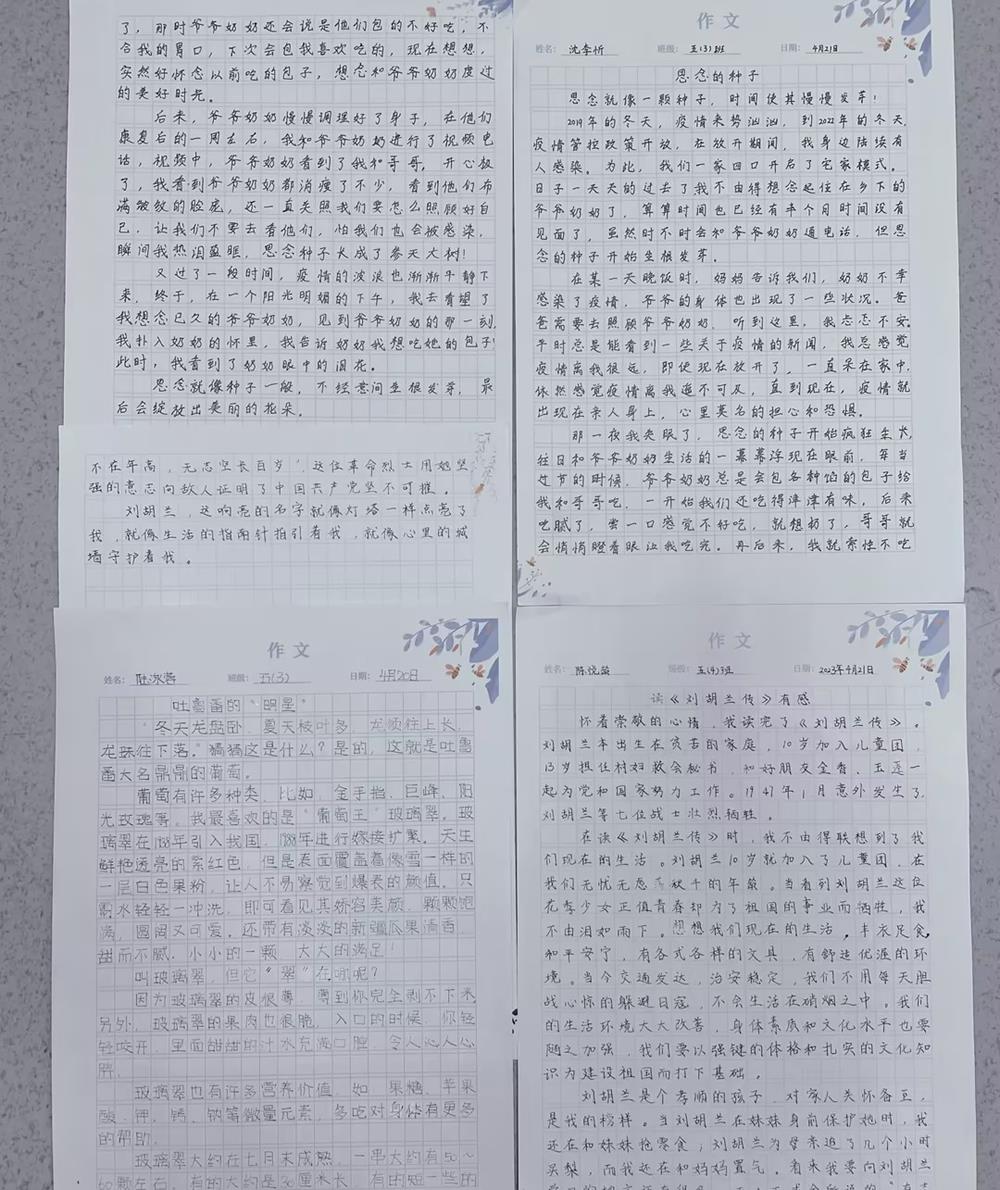 了，那时爷爷奶奶还会说是他们包的不好吃，不
合我的胃口，下次会包我喜欢吃的，现在想想，
突然好怀念以前吃的包子，想念和爷爷奶奶度过
的美好时光。
后来，爷爷奶奶慢慢调理好了身子，在他们
康复后的一周左右，我和爷爷奶奶进行了视频电
话，视频中，爷爷奶奶看到了我和哥哥，开心极
了，我看到爷爷奶奶都消瘦了不少，看到他们布
满皱纹的脸庞，还一直关照我们要怎么照顾好自
己，让我们不要去看他们，怕我们也会被感染，
瞬间我热泪盈眶，思念种子长成了参天大树！
又过了一段时间，疫情的波浪也渐渐平静下
来，终于，在一个阳光明媚的下午，我去看望了
我想念已久的爷爷奶奶，见到爷爷奶奶的那一刻，
我扑入奶奶的怀里，我告诉奶奶我想吃她的包子！
此时，我看到了奶奶眼中的泪花。
思念就像种子一般，不经意间生根发芽，最
后会绽放出美丽的花朵。
作文
姓名：沈李忻 班级：五(3)班 日期：4月21日
思念的种子
思念就像一颗种子，时间使其慢慢发芽！
2019年的冬天，疫情来势汹汹，到2022年的冬天，
疫情管控政策开放，在放开期间，我身边陆续有
人感染。为此，我们一家四口开启了宅家模式。
日子一天天的过去了我不由得想念起住在乡下的
爷爷奶奶了，算算时间也已经有半个月时间没有
见面了，虽然时不时会和爷爷奶奶通电话，但思
念的种子开始生根发芽。
在某一天晚饭时，妈妈告诉我们，奶奶不幸
感染了疫情，爷爷的身体也出现了一些状况。爸
爸需要去照顾爷爷奶奶，听到这里，我忐忑不安。
平时总是能看到一些关于疫情的新闻，我总感觉
疫情离我很远，即使现在放开了，一直呆在家中，
依然感觉疫情离我遥不可及，直到现在，疫情就
出现在亲人身上，心里莫名的担心和恐惧。
那一夜我失眠了，思念的种子开始疯狂生长，
往日和爷爷奶奶生活的一幕幕浮现在眼前，每当
过节的时候，爷爷奶奶总是会包各种馅的包子给
我和哥哥吃，一开始我们还吃得津津有味，后来
吃腻了，尝一口感觉不好吃，就想扔了，哥哥就
会悄悄瞪着眼让我吃完。再后来，我就索性不吃
不在年高，无志空长百岁”，这位革命烈士用她坚
强的意志向敌人证明了中国共产党坚不可摧。
刘胡兰，这响亮的名字就像灯塔一样点亮了
我，就像生活的指南针指引着我，就像心里的城
墙守护着我。
作文
姓名： 班级：五(3) 日期：4月20日
吐鲁番的“明星”
“冬天龙盘卧，夏天枝叶多，龙须往上长，
龙珠往下落。”猜猜这是什么？是的，这就是吐鲁
番大名鼎鼎的葡萄。
葡萄有许多种类，比如，金手指、巨峰、阳
光玫瑰等。我最喜欢的是“葡萄王”玻璃翠。玻
璃翠在1938年引入我国，1988年进行嫁接扩繁。天生
鲜艳透亮的紫红色，但是表面覆盖着像雪一样的
一层白色果粉，让人不易察觉到爆表的颜值。只
需水轻轻一冲洗，即可看见其娇容素颜，颗颗饱
满，圆润又可爱。还带有淡淡的新疆瓜果清香，
甜而不腻。小小的一颗，大大的满足！
叫玻璃翠，但它“翠”在哪呢？
因为玻璃翠的皮很薄，薄到你完全剥不下来。
另外，玻璃翠的果肉也很脆，入口的时候，你轻
轻咬开，里面甜甜的汁水充满口腔，令人沁人心
脾。
玻璃翠也有许多营养价值，如，果糖、苹果
酸、钾、钙、钠等微量元素，多吃对身体有更多
的帮助。
玻璃翠大约在七月末成熟，一串大约有50～
60颗左右，有的大约是30厘米长，有的短一些的
作文
姓名：陈悦 班级：五(4)班 日期：2023年4月21日
读《刘胡兰传》有感
怀着崇敬的心情，我读完了《刘胡兰传》。
刘胡兰本出生在贫苦的家庭，10岁加入儿童团，
13岁担任村妇救会秘书，和好朋友金香、玉莲一
起为党和国家努力工作。1947年1月意外发生了，
刘胡兰等七位战士壮烈牺牲。
在读《刘胡兰传》时，我不由得联想到了我
们现在的生活。刘胡兰10岁就加入了儿童团，在
我们无忧无虑荡秋千的年龄。当看到刘胡兰这位
花季少女正值青春却为了祖国的事业而牺牲，我
不由泪如雨下。想想我们现在的生活，丰衣足食，
和平安宁，有各式各样的文具，有舒适优渥的环
境。当今交通发达，治安稳定，我们不用每天胆
战心惊的躲避日寇，不会生活在硝烟之中。我们
的生活环境大大改善，身体素质和文化水平也要
随之加强，我们要以强键的体格和扎实的文化知
识为建设祖国而打下基础。
刘胡兰是个孝顺的孩子，对家人关怀备至，
是我的榜样。当刘胡兰在妹妹身前保护她时，我
还在和妹妹抢零食；刘胡兰为母亲追了几个小时
买梨，而我还在和妈妈置气。看来我要向刘胡兰